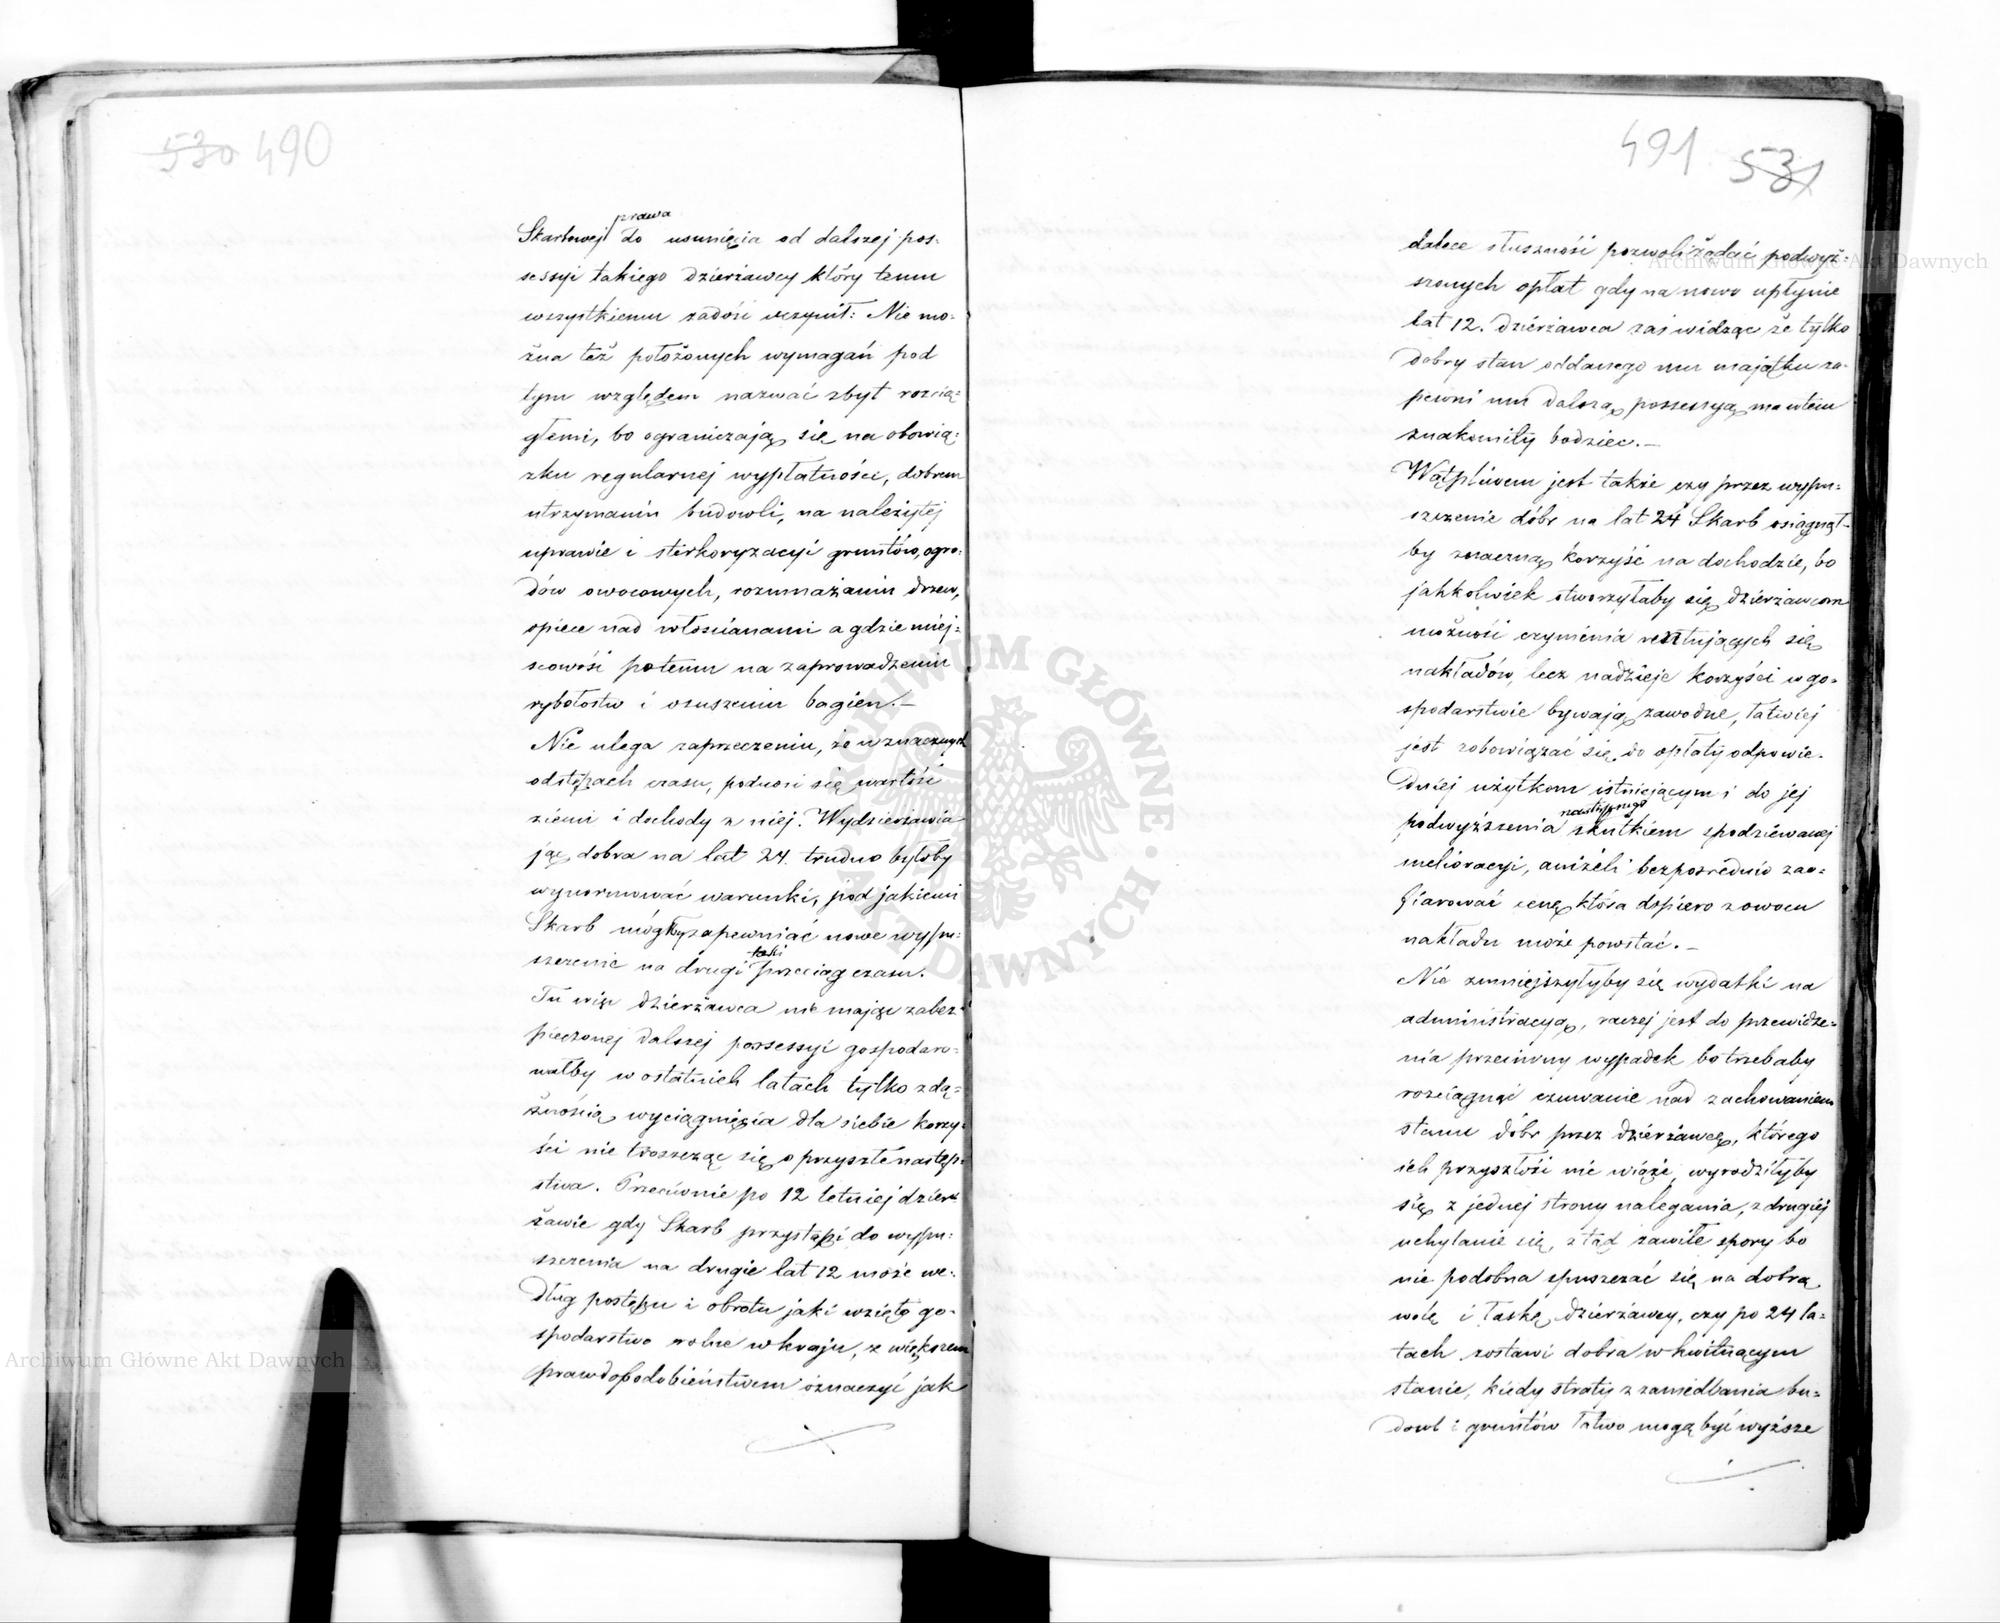 530 490
prawa
Skarbowej do usunięcia od dalszej pos-
sessyi takiego dzierżawcy który temu
wszystkiemu zadość uczynił: Nie mo-
żna też położonych wymagań pod
tym względem nazwać zbyt rozcią-
głemi, bo ograniczają się na obowią-
zku regularnej wypłatności, dobrem
utrzymaniu budowli, na należytej
uprawie i sterkoryzacyi gruntów, ogro-
dów owocowych, rozmnażaniu drzew,
opiece nad włościanami a gdzie miej-
scowość potemu na zaprowadzeniu
rybołostw i osuszeniu bagien.—
Nie ulega zaprzeczeniu, że w znacznych
odstępach czasu, podnosi się wartość
ziemi i dochody z niej. Wydzierżawia
jąc dobra na lat 24. trudno byłoby
wynormować warunki, pod jakiemi
Skarb mógłby zapewniać nowe wypu-
taki
szczenie na drugi przeciąg czasu.
Tu więc dzierżawca nie mając zabez-
pieczonej dalszej possessyi gospodaro-
wałby w ostatnich latach tylko z dą-
żnością wyciągnięcia dla siebie korzy-
ści nie troszcząc się o przyszłe następ-
stwa. Przeciwnie po 12 letniej dzier-
żawie gdy Skarb przystąpi do wypu-
szczenia na drugie lat 12 może we-
dług postępu i obrotu jaki wzięło go-
spodarstwo rolne w kraju, z większem
prawdopodobieństwem oznaczyć jak
491 531
dalece słuszność pozwoli żądać podwyż-
szonych opłat gdy na nowo upłynie
lat 12. Dzierżawca zaś widząc że tylko
dobry stan oddanego mu majątku za-
pewni mu dalszą possessyą ma w tem
znakomity bodziec.—
Wątpliwem jest także czy przez wypu-
szczenie dóbr na lat 24 Skarb osiągnął-
by znaczną korzyść na dochodzie, bo
jakkolwiek stworzyłaby się dzierżawcom
możność czynienia rentujących się
nakładów, lecz nadzieje korzyści w go-
spodarstwie bywają zawodne, łatwiej
jest zobowiązać się do opłaty odpowie-
dniej użytkom istniejącym i do jej
następnego
podwyższenia skutkiem spodziewanej
melioracyi, aniżeli bezpośrednio zao-
fiarować cenę która dopiero z owocu
nakładu może powstać.—
Nie zmniejszyłyby się wydatki na
administracyą, raczej jest do przewidze-
nia przeciwny wypadek bo trzebaby
rozciągnąć czuwanie nad zachowaniem
stanu dóbr przez dzierżawcę, którego
ich przyszłość nie wiąże, wyrodziłyby
się z jednej strony nalegania, z drugiej
uchylanie się, ztąd zawiłe spory bo
nie podobna spuszczać się na dobrą
wolę i łaskę dzierżawcy, czy po 24 la-
tach zostawi dobra w kwitnącym
stanie, kiedy straty z zaniedbania bu-
dowl i gruntów łatwo mogą być wyższe
Archiwum Główne Akt Dawnych
Archiwum Główne Akt Dawnych
ARCHIWUM GŁÓWNE AKT DAWNYCH